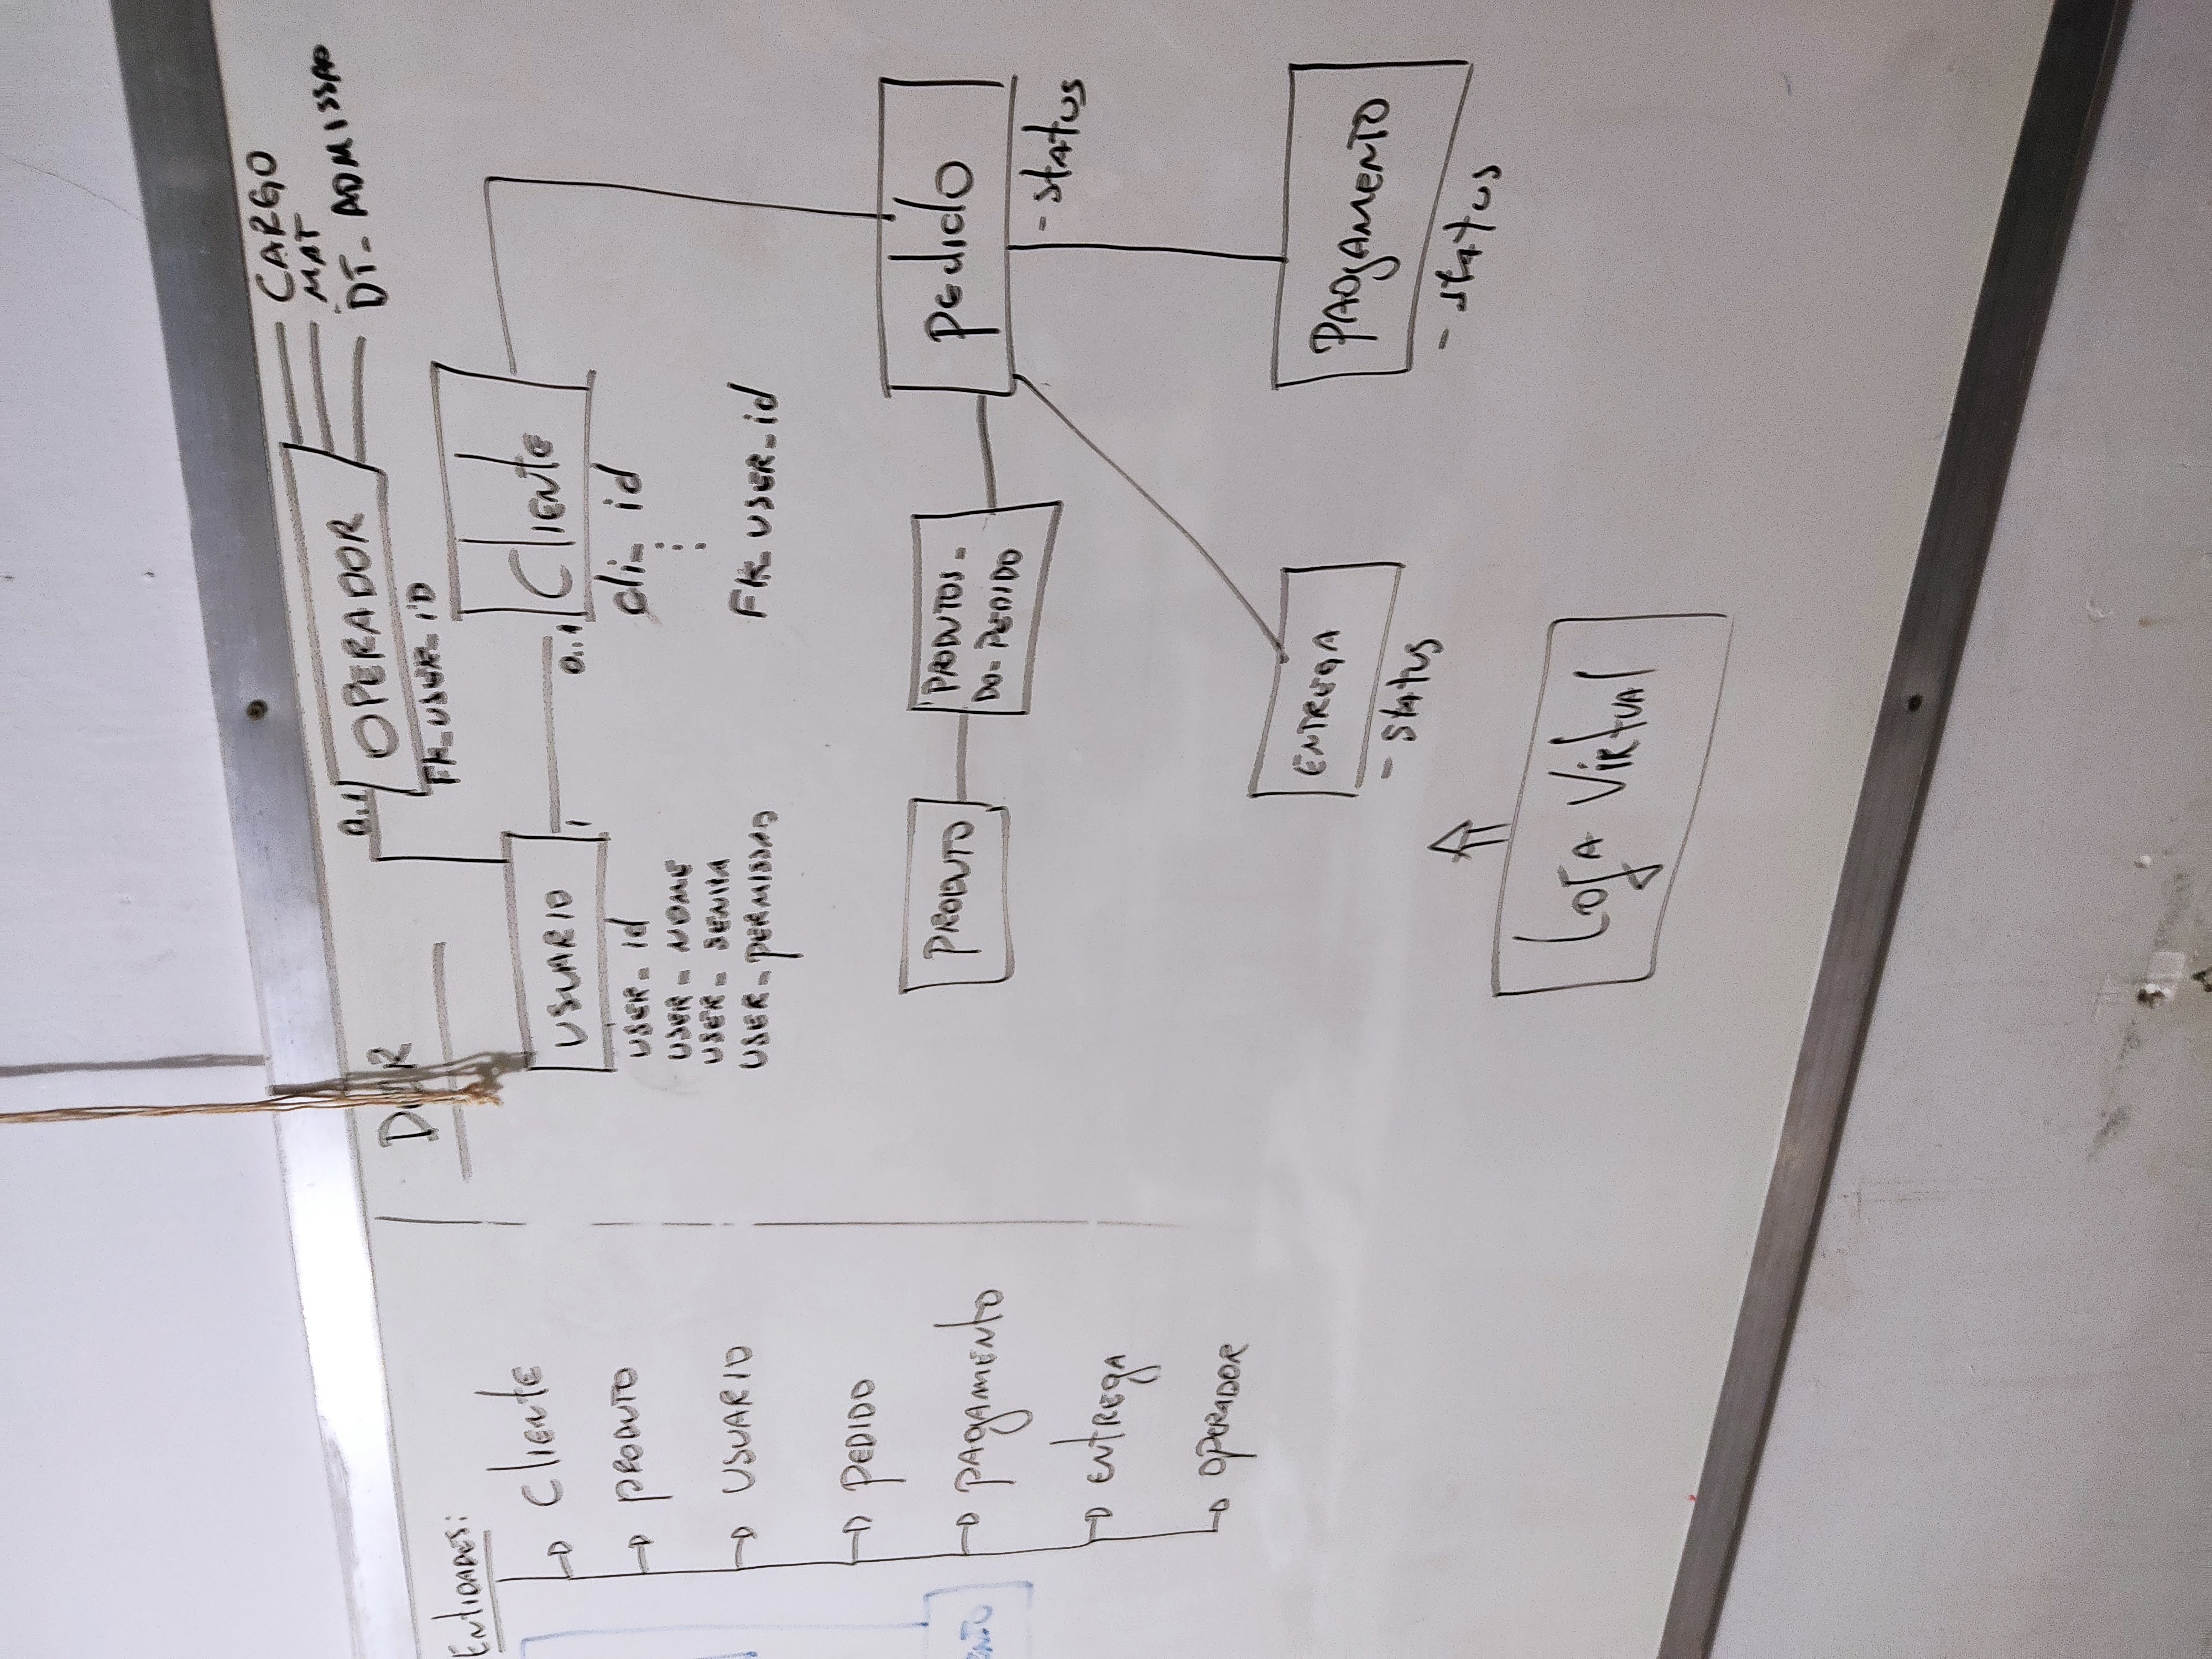 Entidades:
Cliente
produto
usuario
pedido
pagamento
entrega
operador
DER
OPERADOR
0..1
CARGO
MAT
DT_ADMISSAO
FK_USER_ID
USUARIO
1
0..1
Cliente
USER_id
USER_NOME
USER_SENHA
USER_PERMISSAO
cli_id
FK_USER_id
PRODUTO
PRODUTOS_
DO_PEDIDO
pedido
- status
ENTREGA
- status
PAgAMENTO
- status
Loja Virtual